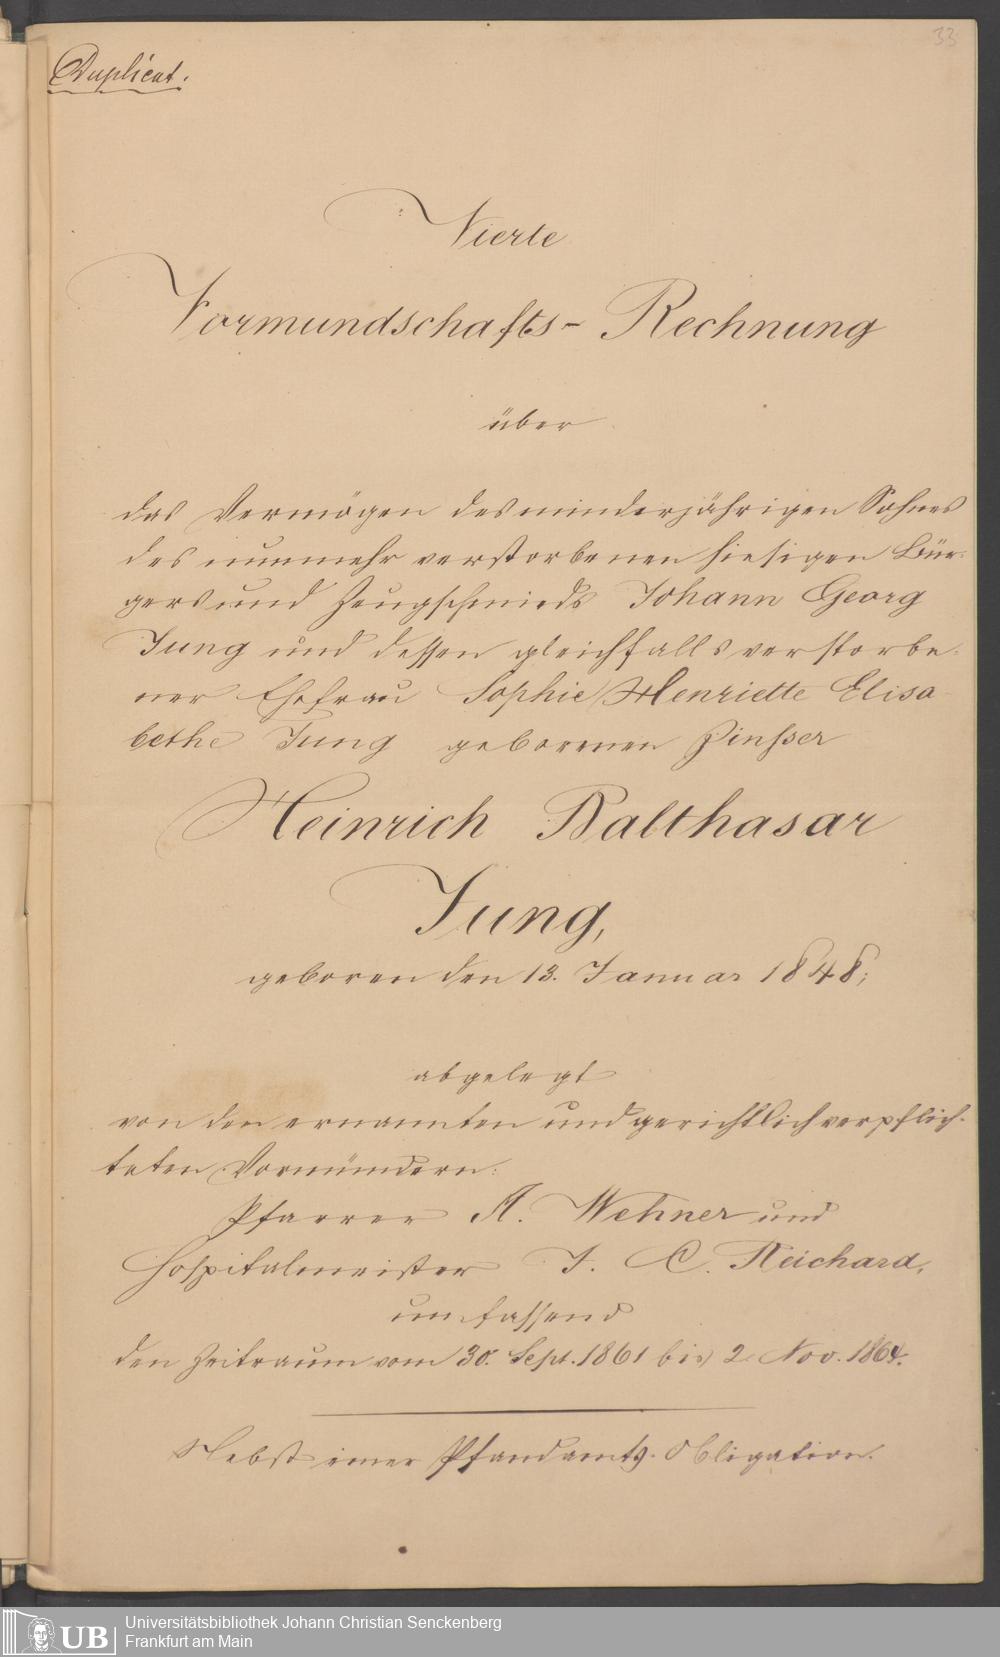 33
Duplicat.
Vierte
Vormundschafts-Rechnung
über
das Vermögen des minderjährigen Sohnes
des nunmehr verstorbenen hiesigen Bür-
gers und Zeugschmieds Johann Georg
Jung und dessen gleichfalls verstorbe-
ner Ehefrau Sophie Henriette Elisa-
bethe Jung geborenen Zinsser
Heinrich Balthasar
Jung,
geboren den 13. Januar 1848;
abgelegt
von den ernannten und gerichtlich verpflich-
teten Vormündern:
Pfarrer A. Wehner und
Hospitalmeister J. C. Reichard,
umfassend
den Zeitraum vom 30. Sept. 1861 bis 2. Nov. 1864.
Nebst einer Pfandamts-Obligation.
UB
Universitätsbibliothek Johann Christian Senckenberg
Frankfurt am Main